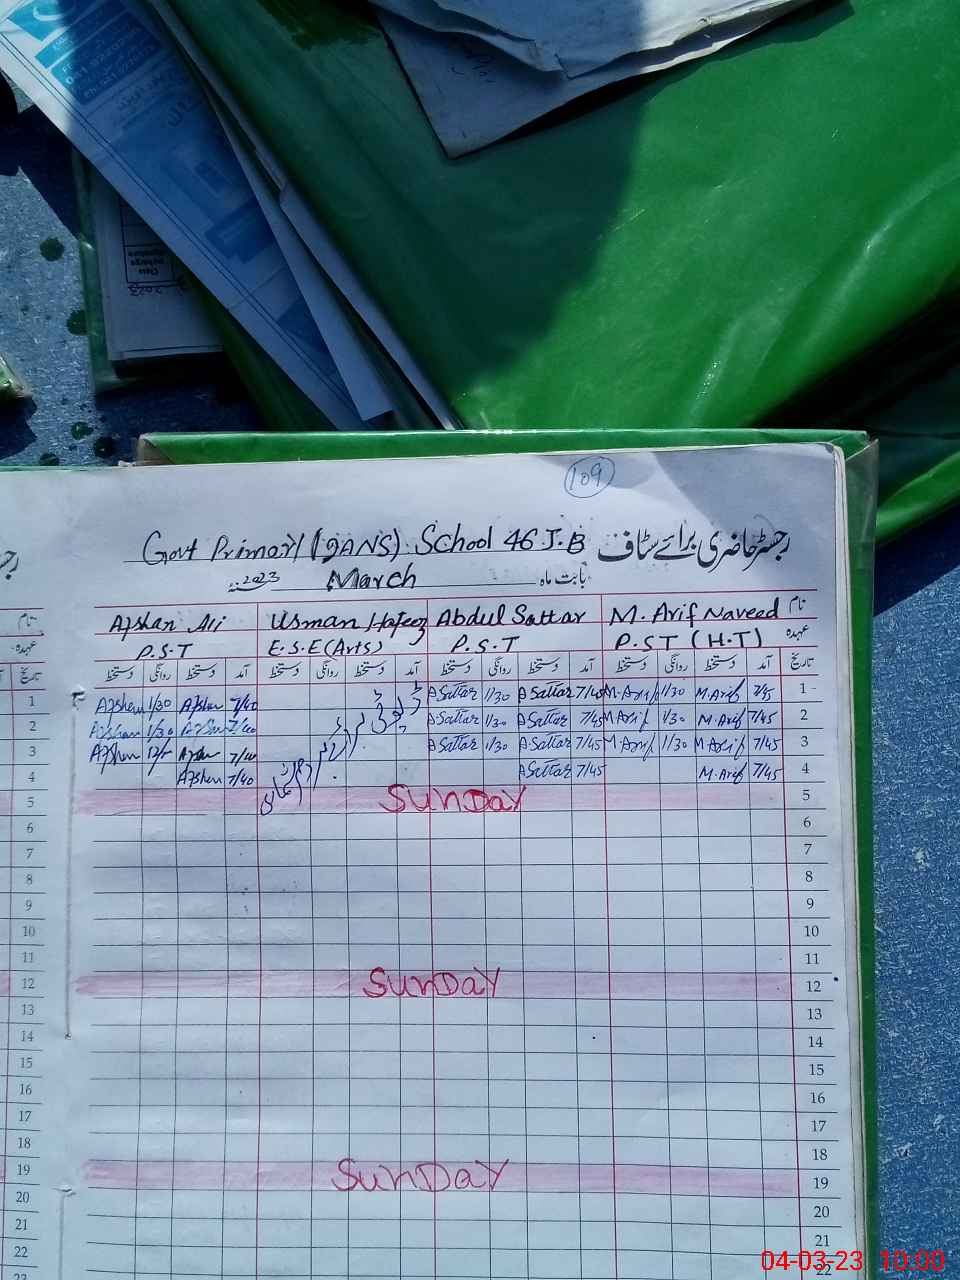 109
Govt Primary (SANS) School 46 J.B رجسٹر حاضری برائے سٹاف
بابت ماہ March 2023
نام M. Arif Naveed Abdul Sattar Usman Hafeez Afshan Ali
عہدہ P.ST (H.T) P.S.T E.S.E (Arts) P.S.T
تاریخ آمد دستخط روانگی دستخط آمد دستخط روانگی دستخط آمد دستخط روانگی دستخط آمد دستخط روانگی دستخط
1 7/45 M.Arif 1/30 M.Arif 7/45 A Sattar 1/30 A Sattar 7/40 Afshan 1/30 Afshan
2 7/45 M.Arif 1/30 M.Arif 7/45 A Sattar 1/30 A Sattar 7/40 Afshan 1/30 Afshan
3 7/45 M Arif 1/30 M Arif 7/45 A Sattar 1/30 A Sattar 7/40 Afshan Afshan
4 7/45 M.Arif 7/45 A Sattar 7/40 Afshan
5 SUNDAY
6
7
8
9
10
11
12 SUNDAY
13
14
15
16
17
18
19 SUNDAY
20
21
22
04-03-23 10:00